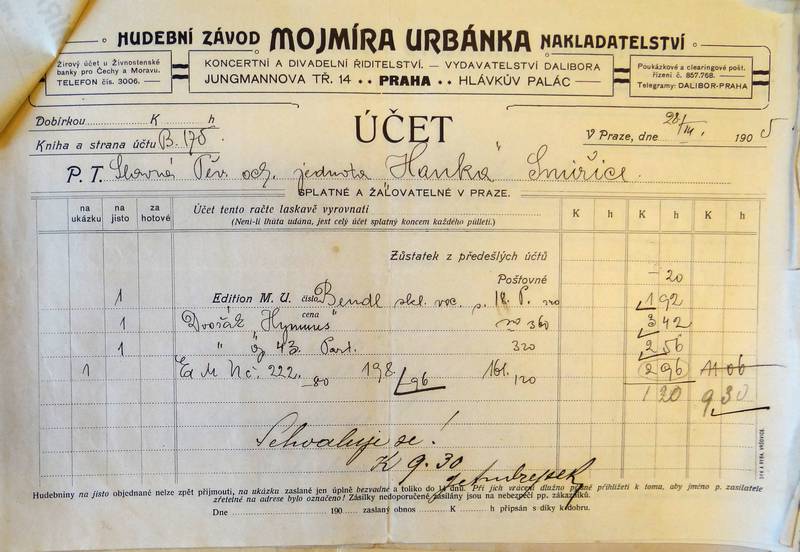 HUDEBNÍ ZÁVOD MOJMÍRA URBÁNKA NAKLADATELSTVÍ
Žirový účet u Živnostenské
banky pro Čechy a Moravu.
TELEFON čís. 3006.
KONCERTNÍ A DIVADELNÍ ŘIDITELSTVÍ. — VYDAVATELSTVÍ DALIBORA
JUNGMANNOVA TŘ. 14 •• PRAHA •• HLÁVKŮV PALÁC
Poukázkové a clearingové pošt.
řízení č. 857.768.
Telegramy: DALIBOR-PRAHA
Dobírkou K h
Kniha a strana účtu B. 175
ÚČET
V Praze, dne 28/III. 1905
P. T. Slavná Pěv. och. jednota "Hanka" Smiřice
SPLATNÉ A ŽALOVATELNÉ V PRAZE.
na ukázku
na jisto
za hotové
Účet tento račte laskavě vyrovnati
(Není-li lhůta udána, jest celý účet splatný koncem každého půlletí.)
K h K h K h
Zůstatek z předešlých účtů
Poštovné – 20
1 Edition M. U. číslo Bendl skl. voc. p. 18. P. 1 92
1 Dvořák cena "Hymnus" no 360 3 42
1 " 43. Part. 320 2 56
1 Ed M Nč. 222. 80 198. 96 161. 120 2 96 11 06
1 20 9 30
Schvaluje se!
K 9·30
Hudebniny na jisto objednané nelze zpět přijmouti, na ukázku zaslané jen úplně bezvadné a toliko do 14 dnů. Při jich vrácení dlužno přesně přihlížeti k tomu, aby jméno p. zasílatele
zřetelně na adrese bylo označeno! Zásilky nedoporučené zasílány jsou na nebezpečí pp. zákazníků.
Dne 190 zaslaný obnos K h připsán s díky k dobru.